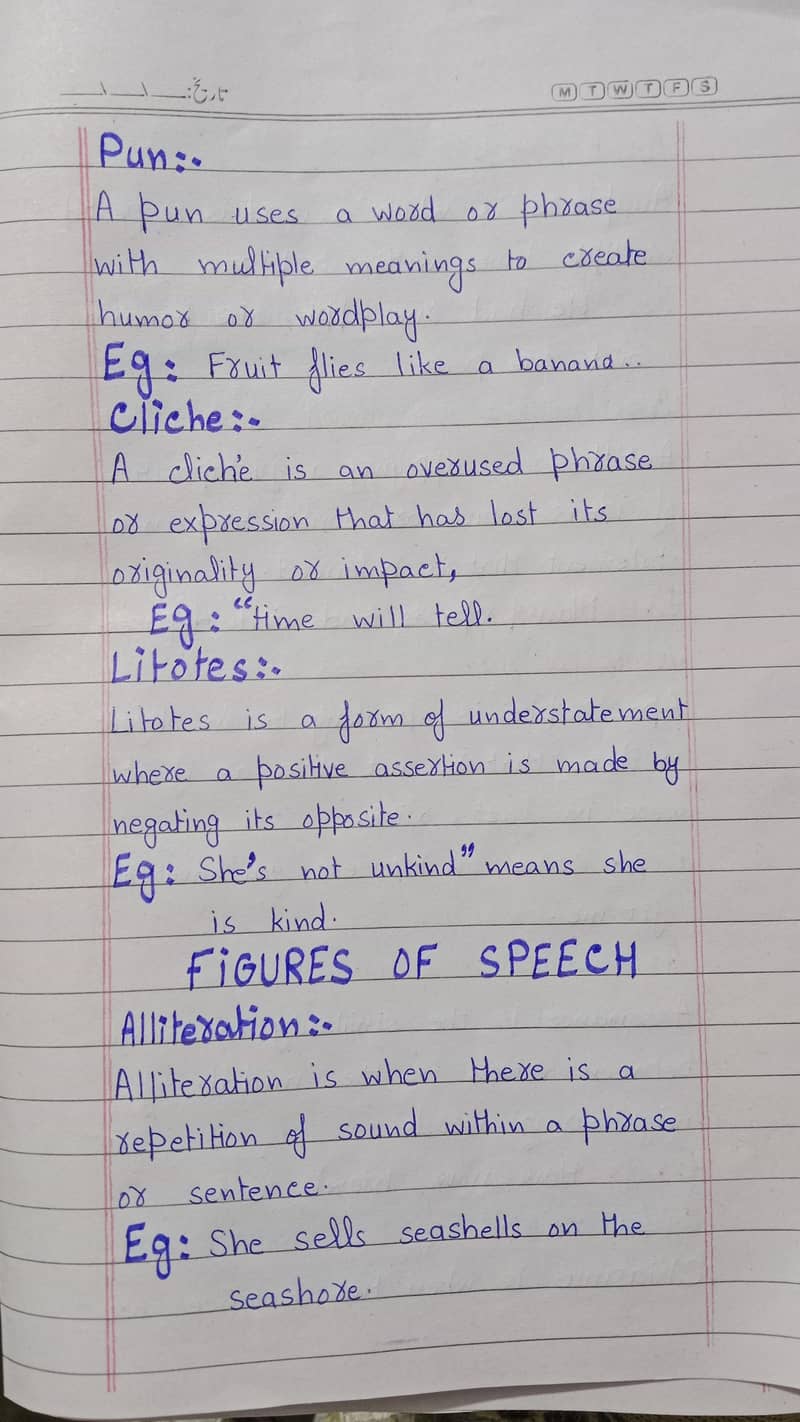 تاریخ: ____\____\____
M T W T F S
Pun:-
A pun uses a word or phrase
with multiple meanings to create
humor or wordplay.
Eg: Fruit flies like a banana..
Cliche:-
A cliché is an overused phrase
or expression that has lost its
originality or impact,
Eg: "time will tell.
Litotes:-
Litotes is a form of understatement
where a positive assertion is made by
negating its opposite.
Eg: She's not unkind" means she
is kind.
FiGURES OF SPEECH
Alliteration:-
Alliteration is when there is a
repetition of sound within a phrase
or sentence.
Eg: She sells seashells on the
seashore.